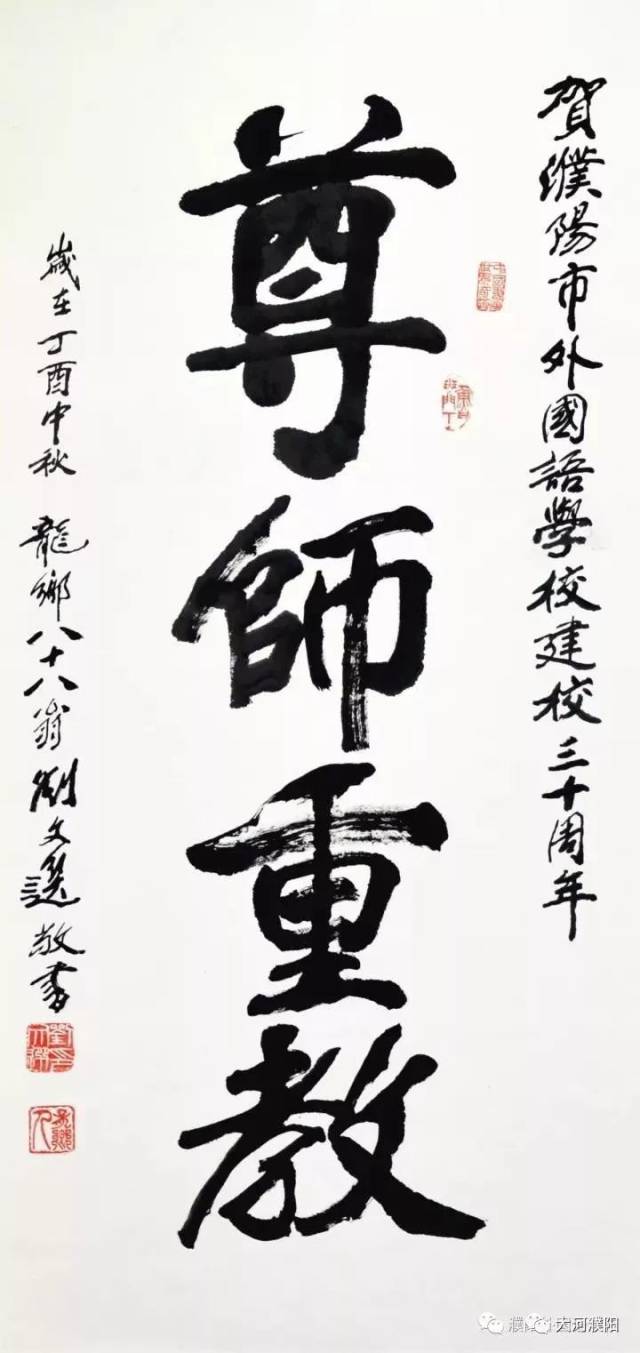 賀濮陽市外國語學校建校三十周年
尊師重教
歲在丁酉中秋
龍鄉八十八翁劉文選敬書
大河濮阳